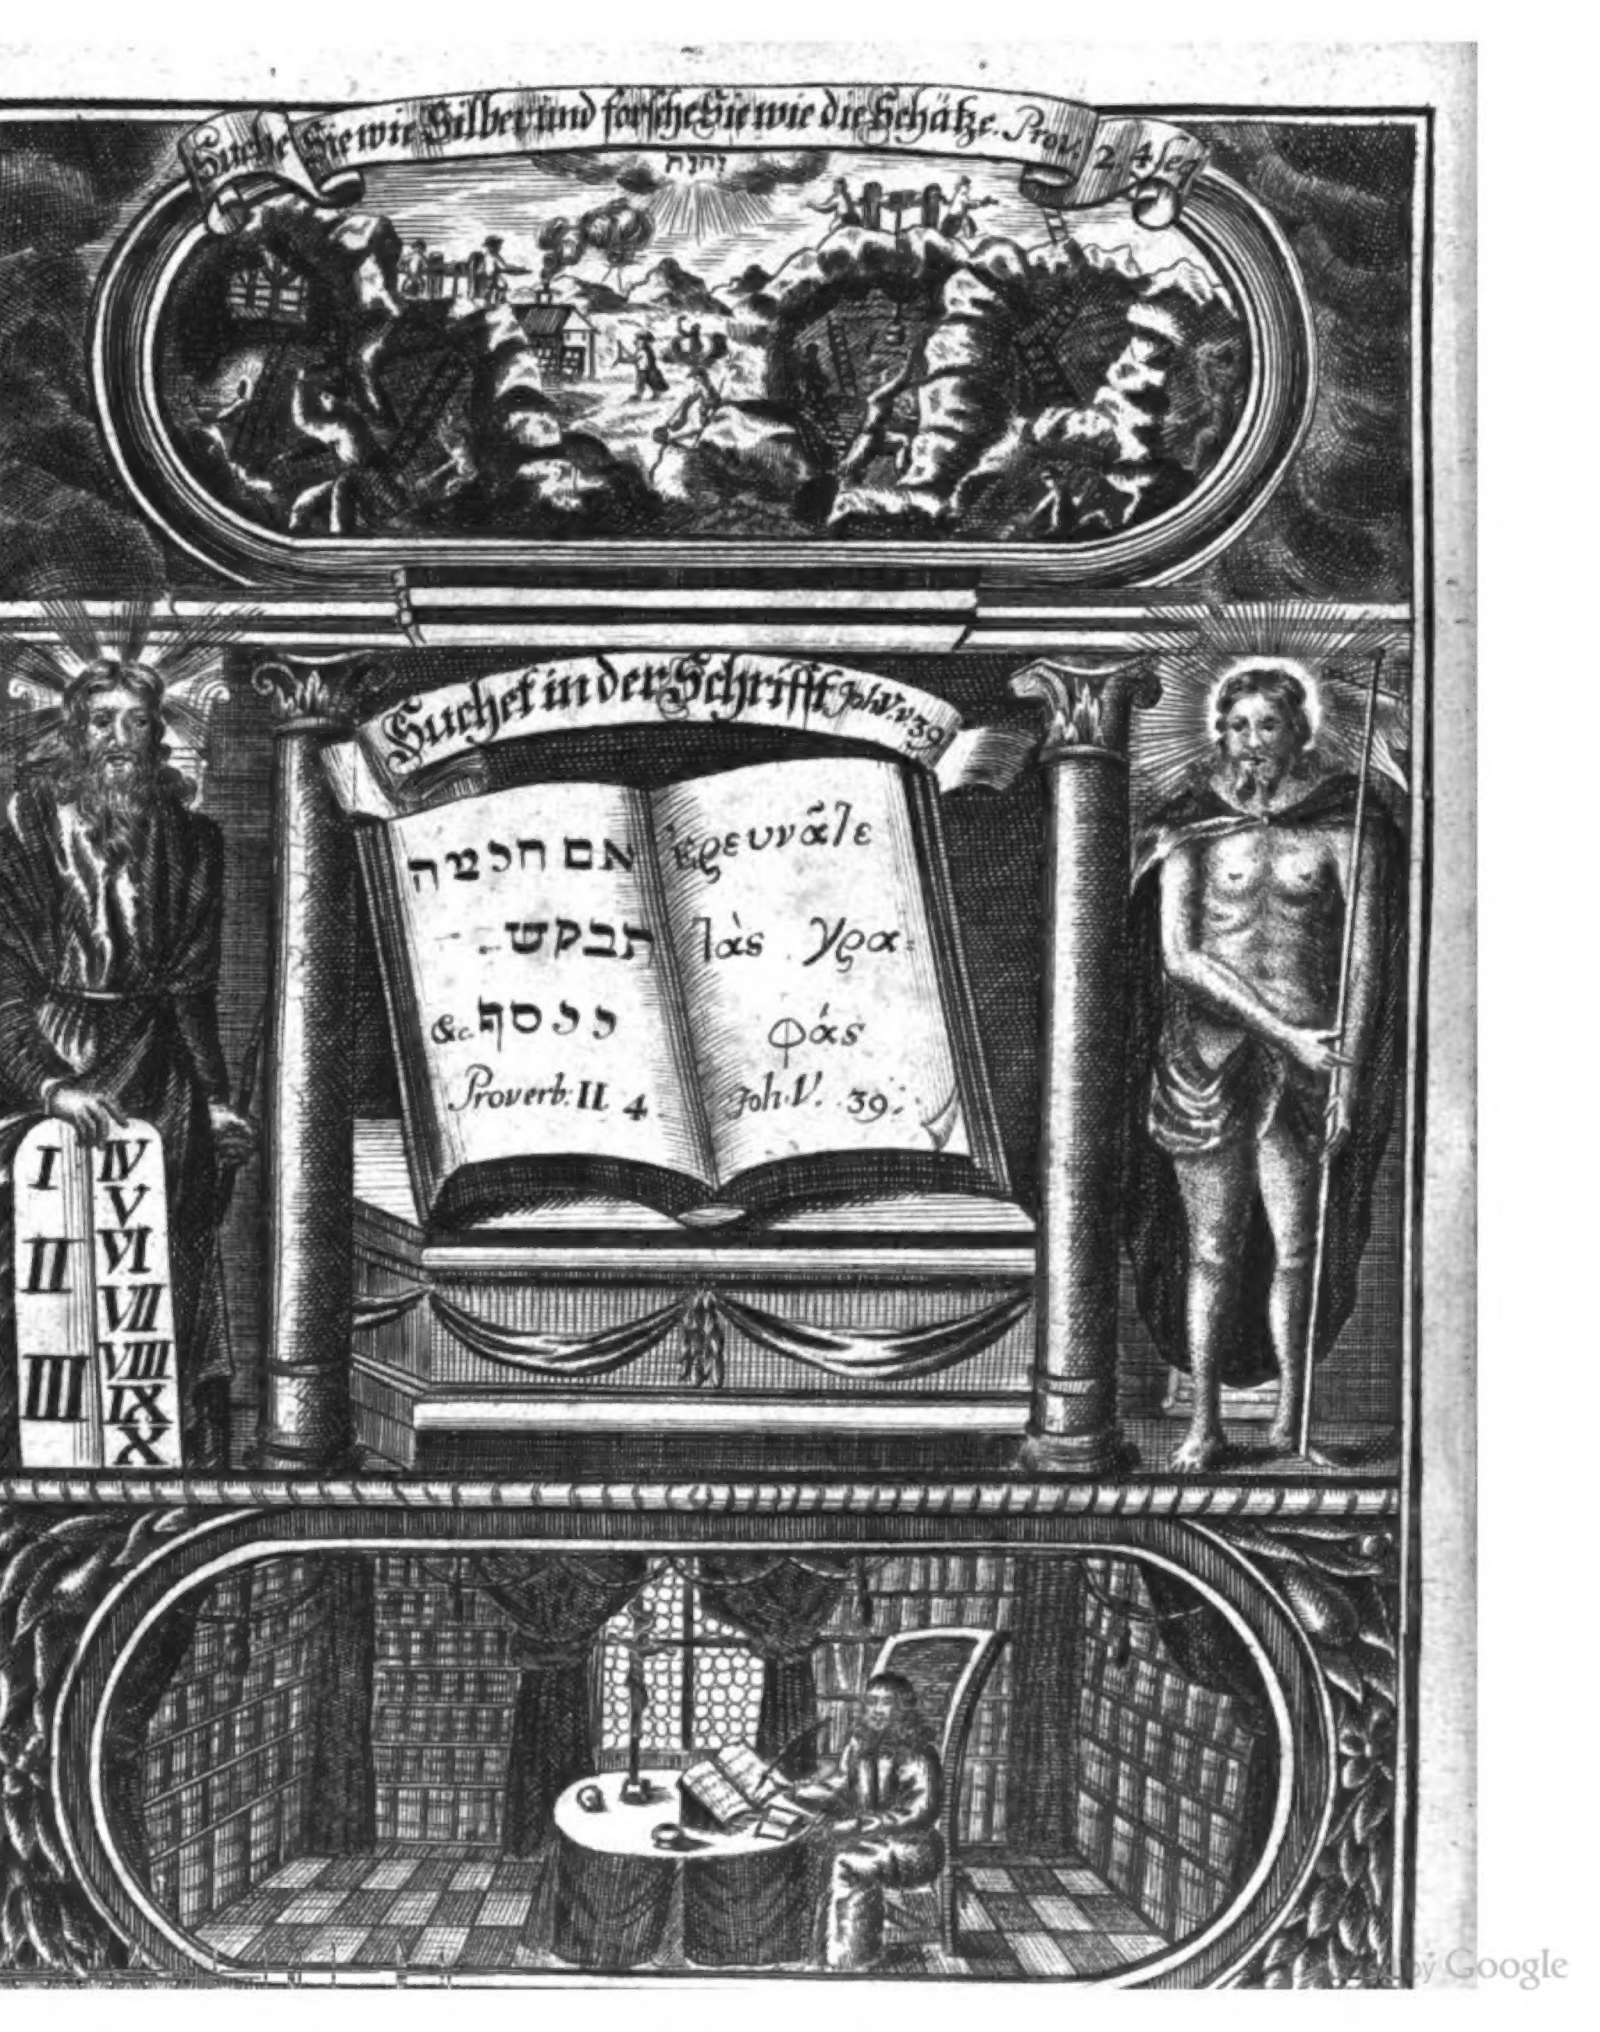 Suche Sie wie Silber und forsche Sie wie die Schätze. Prov. 2 4 seq
יהוה
Suchet in der Schrifft Joh. V. v 39
אם חכמה
תבקש
ככסף &c.
Proverb: II. 4.
ἐρευνᾶτε
τὰς γρα=
φάς
Joh. V. 39.
I
II
III
IV
V
VI
VII
VIII
IX
X
by Google